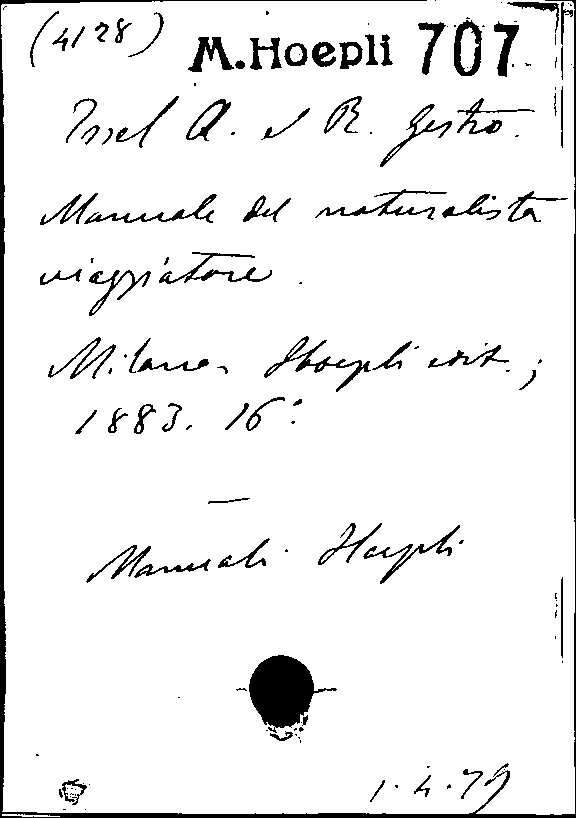 (4128) M.Hoepli 707
Issel A. e R. Gestro.
Manuale del naturalista
viaggiatore.
Milano, Hoepli edit.;
1883. 16°.
—
Manuali Hoepli
1.4.79